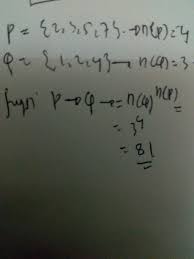 P = {2, 3, 5, 7} → n(P) = 4
Q = {1, 2, 4} → n(Q) = 3
fungsi P → Q → = n(Q)^n(P) =
= 3^4
= 81